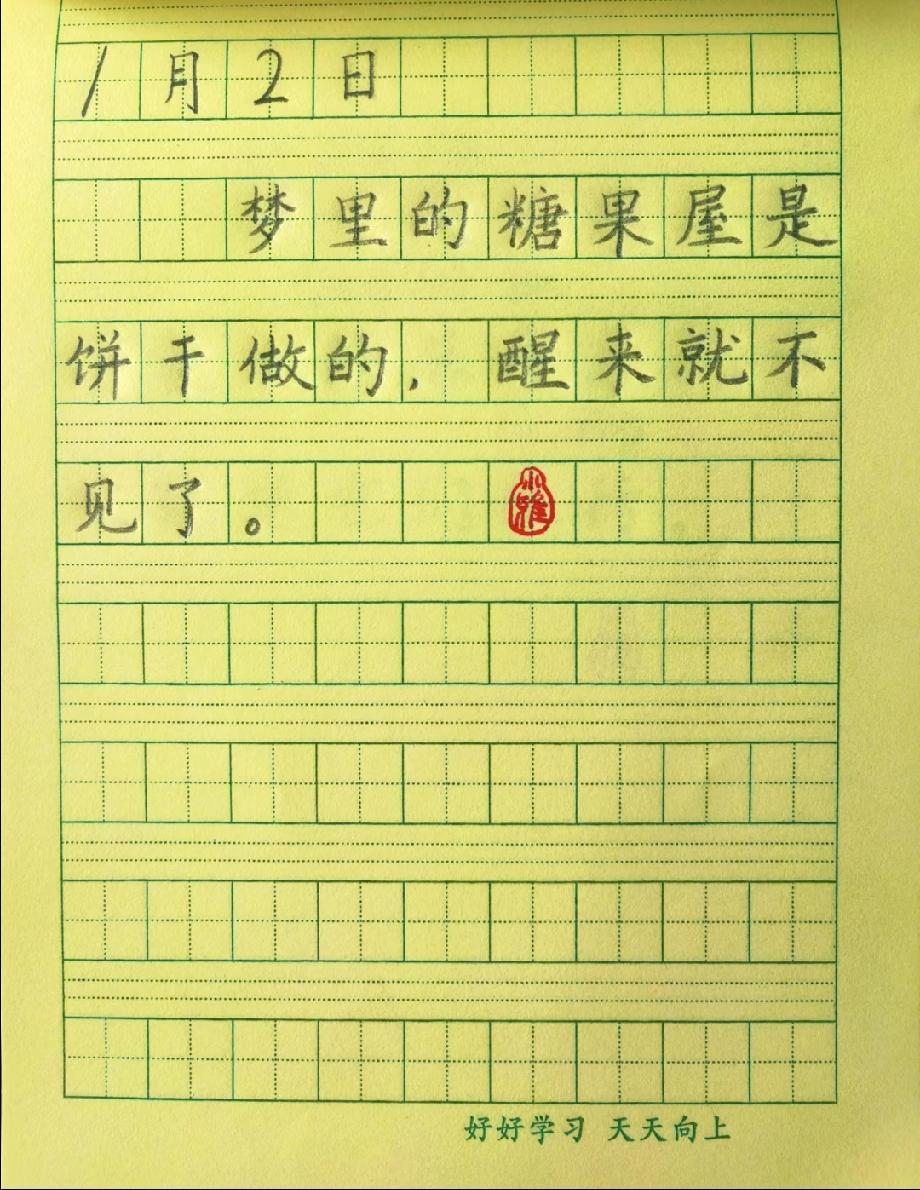 1月2日
梦里的糖果屋是
饼干做的，醒来就不
见了。
小雅
好好学习 天天向上